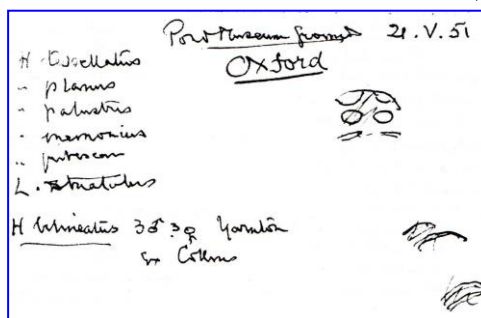 Pond Museum grounds 21.V.51
Oxford
H. tessellatus
" planus
" palustris
" memnonius
" pubescens
L. striatulus
H bilineatus 3♂ 3♀ Yarnton